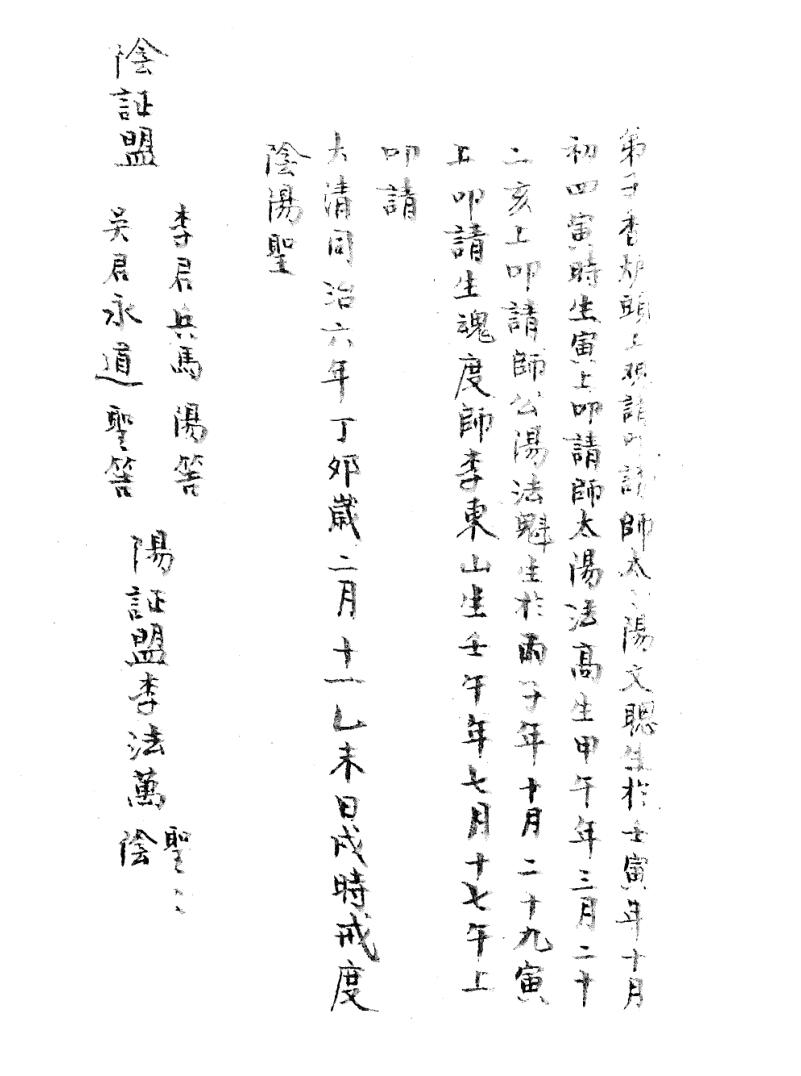 弟子香炉頭上叩請師太陽文聰生於壬寅年十月
初四寅時生寅上叩請師太陽法高生甲午年三月二十
二亥上叩請師公湯法魁生於丙子年十月二十九寅
上叩請生魂度師李東山生壬午年七月十七午上
叩請
大清同治六年丁卯歲二月十一乙未日戌時戒度
陰陽聖
李君兵馬 陽筶
陰証盟 吴君永道 聖筶
陽証盟李法萬 聖
陰